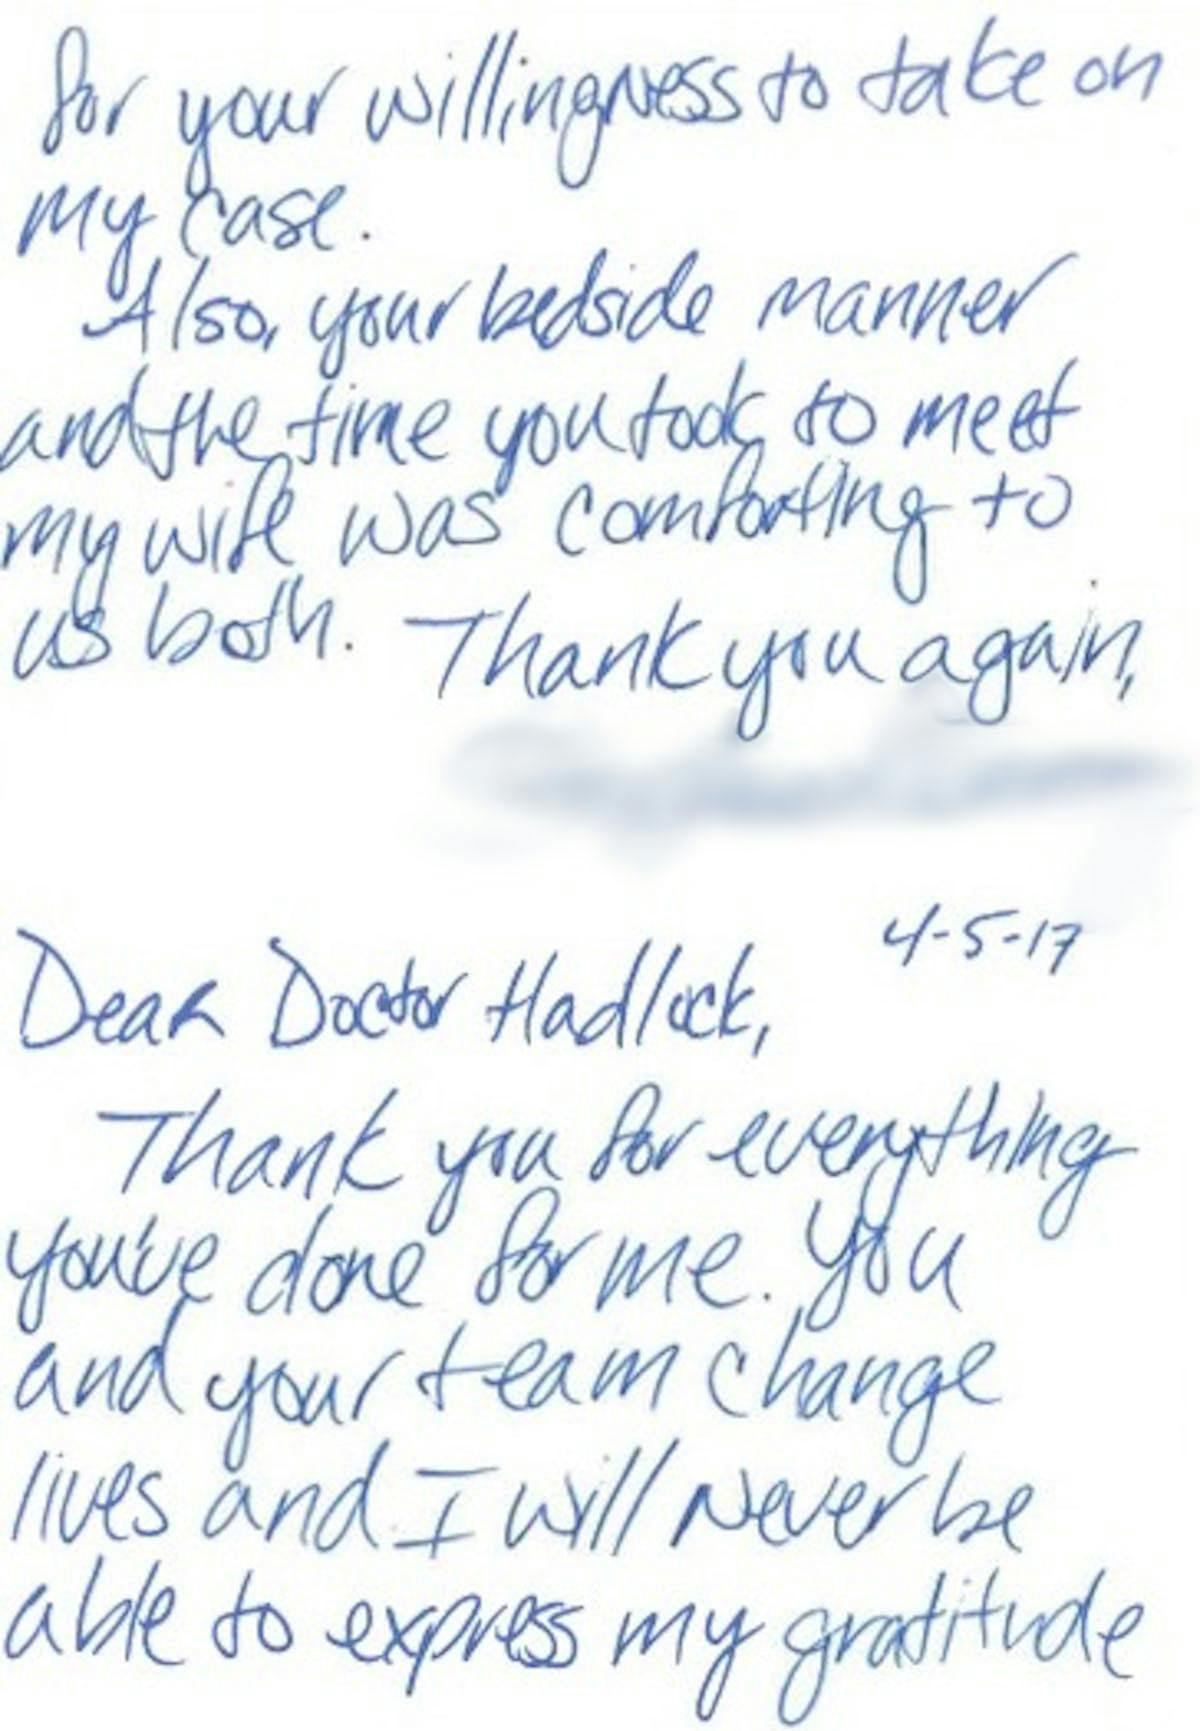 for your willingness to take on
my case.
Also, your bedside manner
and the time you took to meet
my wife was comforting to
us both. Thank you again,
4-5-17
Dear Doctor Hadlock,
Thank you for everything
you've done for me. You
and your team change
lives and I will never be
able to express my gratitude